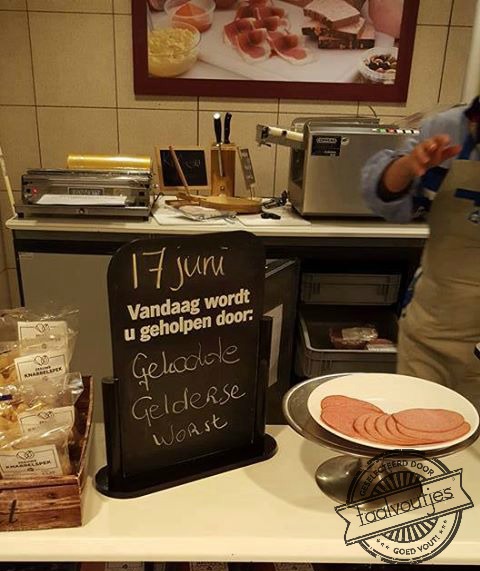 17 juni
Vandaag wordt
u geholpen door:
Gekookte
Gelderse
Worst
KNABBELSPEK
KNABBELSPEK
KNABBELSPEK
GESELECTEERD DOOR
taalvoutjes
GOED VOUT!